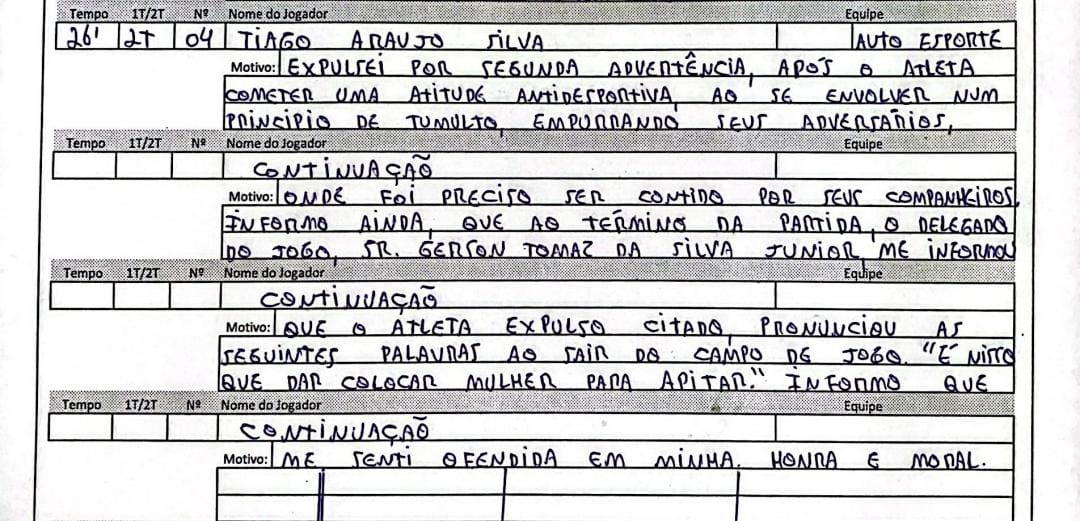 Tempo 1T/2T Nº Nome do Jogador Equipe
26' 2T 04 TIAGO ARAUJO SILVA AUTO ESPORTE
Motivo: EXPULSEI POR SEGUNDA ADVERTÊNCIA, APÓS O ATLETA
COMETER UMA ATITUDE ANTIDESPORTIVA, AO SE ENVOLVER NUM
PRINCIPIO DE TUMULTO, EMPURRANDO SEUS ADVERSÁRIOS,
Tempo 1T/2T Nº Nome do Jogador Equipe
CONTINUAÇÃO
Motivo: ONDE FOI PRECISO SER CONTIDO POR SEUS COMPANHEIROS.
INFORMO AINDA, QUE AO TÉRMINO DA PARTIDA, O DELEGADO
DO JOGO, SR. GERSON TOMAZ DA SILVA JUNIOR, ME INFORMOU
Tempo 1T/2T Nº Nome do Jogador Equipe
CONTINUAÇÃO
Motivo: QUE O ATLETA EXPULSO CITADO, PRONUNCIOU AS
SEGUINTES PALAVRAS AO SAIR DO CAMPO DE JOGO. "É NISSO
QUE DAR COLOCAR MULHER PARA APITAR." INFORMO QUE
Tempo 1T/2T Nº Nome do Jogador Equipe
CONTINUAÇÃO
Motivo: ME SENTI OFENDIDA EM MINHA HONRA E MORAL.